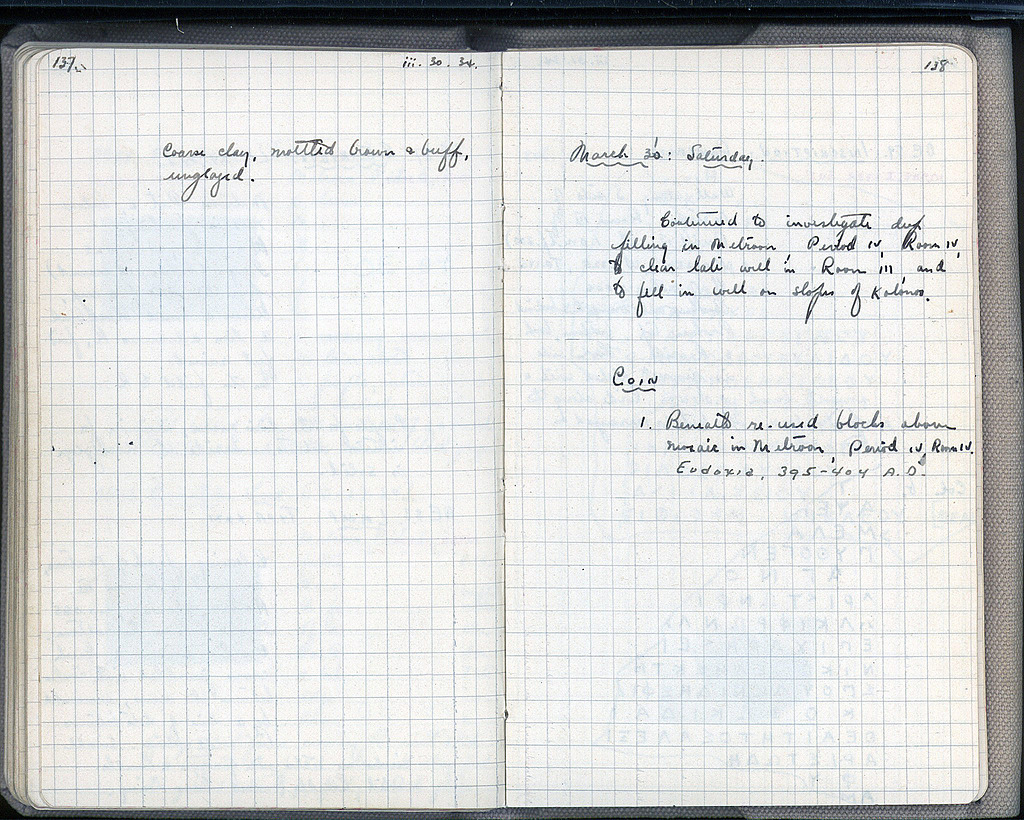 137
iii. 30. 34.
Coarse clay, mottled brown & buff,
unglazed.
138
March 30: Saturday.
Continued to investigate deep
filling in Metroon Period IV, Room IV,
to clear late well in Room III, and
to fill in well on slopes of Kolonos.
Coin
1. Beneath re-used blocks above
mosaic in Metroon, Period IV, Room IV.
Eudoxia, 395-404 A.D.